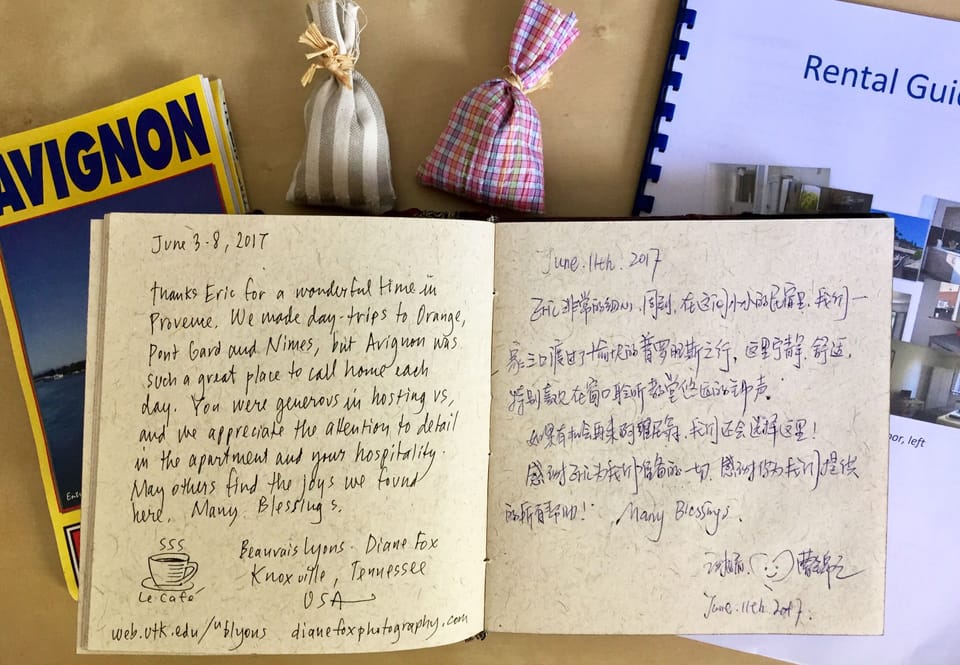 AVIGNON
Rental Gui
June 3-8, 2017
Thanks Eric for a wonderful time in
Provence. We made day-trips to Orange,
Pont Gard and Nimes, but Avignon was
such a great place to call home each
day. You were generous in hosting us,
and we appreciate the attention to detail
in the apartment and your hospitality.
May others find the joys we found
here. Many Blessings.
Le Café
Beauvais Lyons. Diane Fox
Knoxville, Tennessee
USA
web.utk.edu/~blyons dianefoxphotography.com
June.11th.2017
非常的细心,周到,在这间小小的民宿里,我们一
家三口渡过了愉快的普罗旺斯之行,这里宁静、舒适,
特别喜欢在窗口聆听教堂悠远的钟声.
如果有机会再来阿维尼翁,我们还会选择这里!
感谢 为我们准备的一切,感谢你为我们提供
的所有帮助! Many Blessings.
June.11th.2017.
left